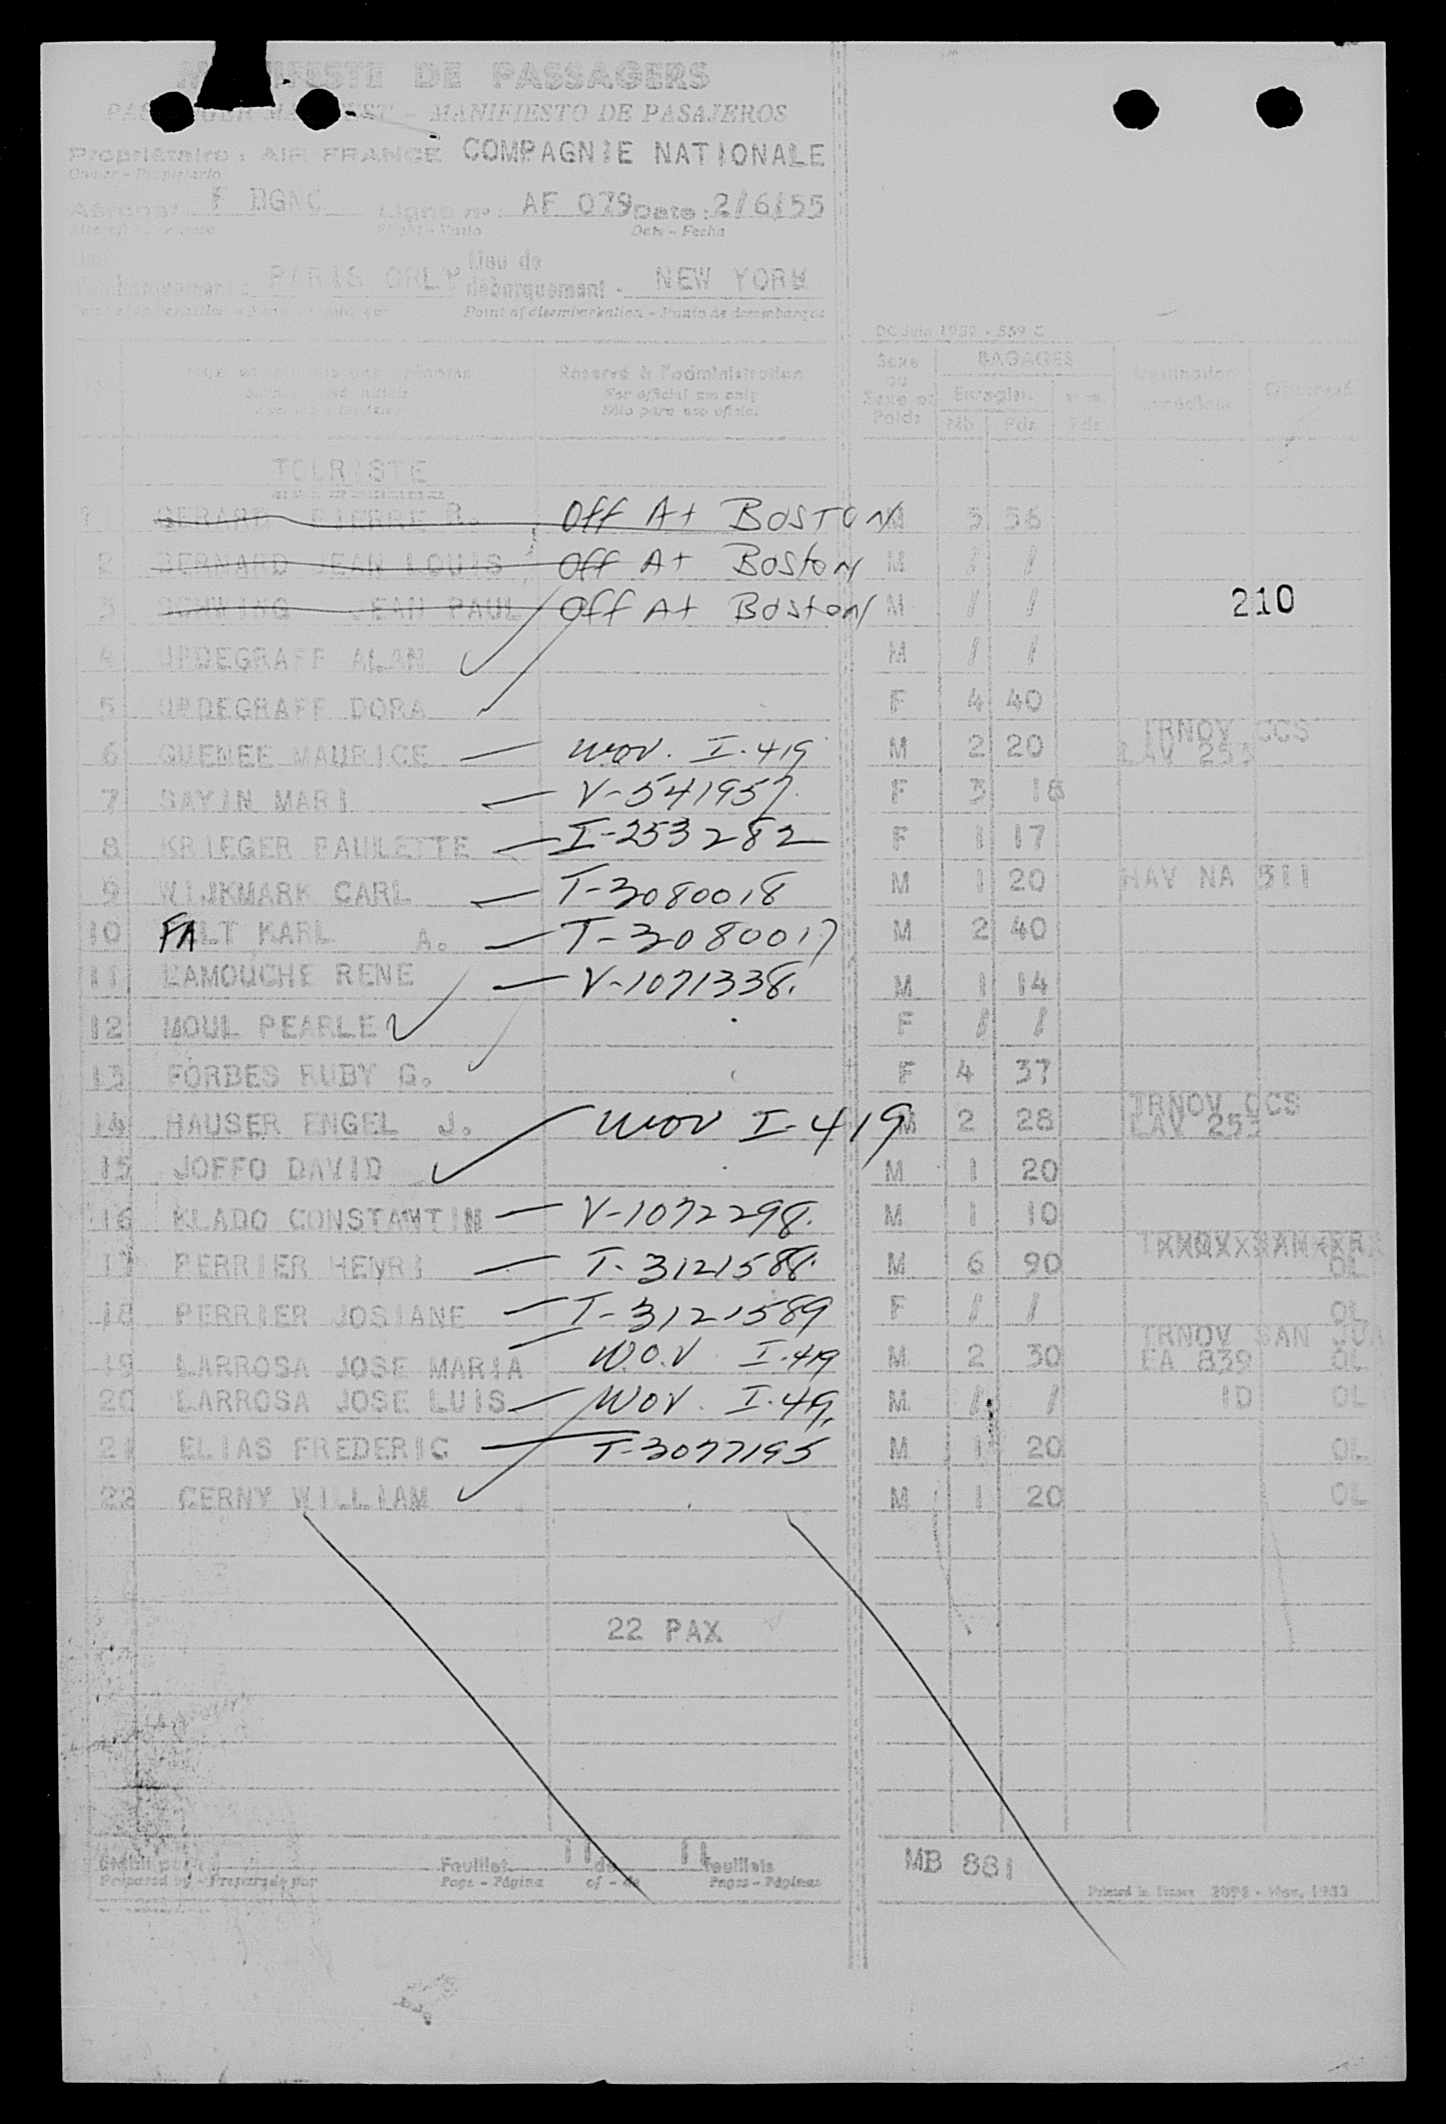 MANIFESTE DE PASSAGERS
PASSENGER MANIFEST - MANIFIESTO DE PASAJEROS
Propriétaire : AIR FRANCE COMPAGNIE NATIONALE
Owner - Propietario
F BGNC Ligne no: AF 079 Date: 2/6/55
Date - Fecha
PARIS ORLY Lieu de débarquement - NEW YORK
Point of disembarkation - Punto de desembarque
Réservé à l'administration
For official use only
Sólo para uso oficial
Sexe ou Sexe et Poids BAGAGES
Enregist. Nb Pds Pds
TOURISTE
1 GERARD PIERRE R. Off At BOSTON M 3 56
2 BERNARD JEAN LOUIS Off At Boston M / /
3 JEAN PAUL Off At Boston M / /
210
4 UPDEGRAFF ALAN M / /
5 UPDEGRAFF DORA F 4 40
6 GUENEE MAURICE — WOV. I-419 M 2 20 TRNOV CCS LAV 253
7 SAYIN MARI — V-541957 F 3 18
8 KRIEGER PAULETTE — I-253282 F 1 17
9 WIJKMARK CARL — T-3080018 M 1 20 NAV NA 511
10 FALT KARL A. — T-3080017 M 2 40
11 LAMOUCHE RENE — V-1071338. M 1 14
12 MOUL PEARLE F / /
13 FORBES RUBY G. F 4 37
14 HAUSER ENGEL J. WOV I-419 M 2 28 TRNOV CCS LAV 253
15 JOFFO DAVID M 1 20
16 KLADO CONSTANTIN — V-1072298. M 1 10
17 PERRIER HENRI — T-3121588. M 6 90 OL
18 PERRIER JOSIANE — T-3121589 F / / OL
19 LARROSA JOSE MARIA — W.O.V I-419 M 2 30 TRNOV SAN JUA EA 839 OL
20 LARROSA JOSE LUIS — WOV. I-49. M / / ID OL
21 ELIAS FREDERIC — T-3077195 M 1 20 OL
22 CERNY WILLIAM M 1 20 OL
22 PAX
Feuillet 11 de 11 feuillets MB 881
Prepared by - Preparado por Page - Página of - de Pages - Páginas